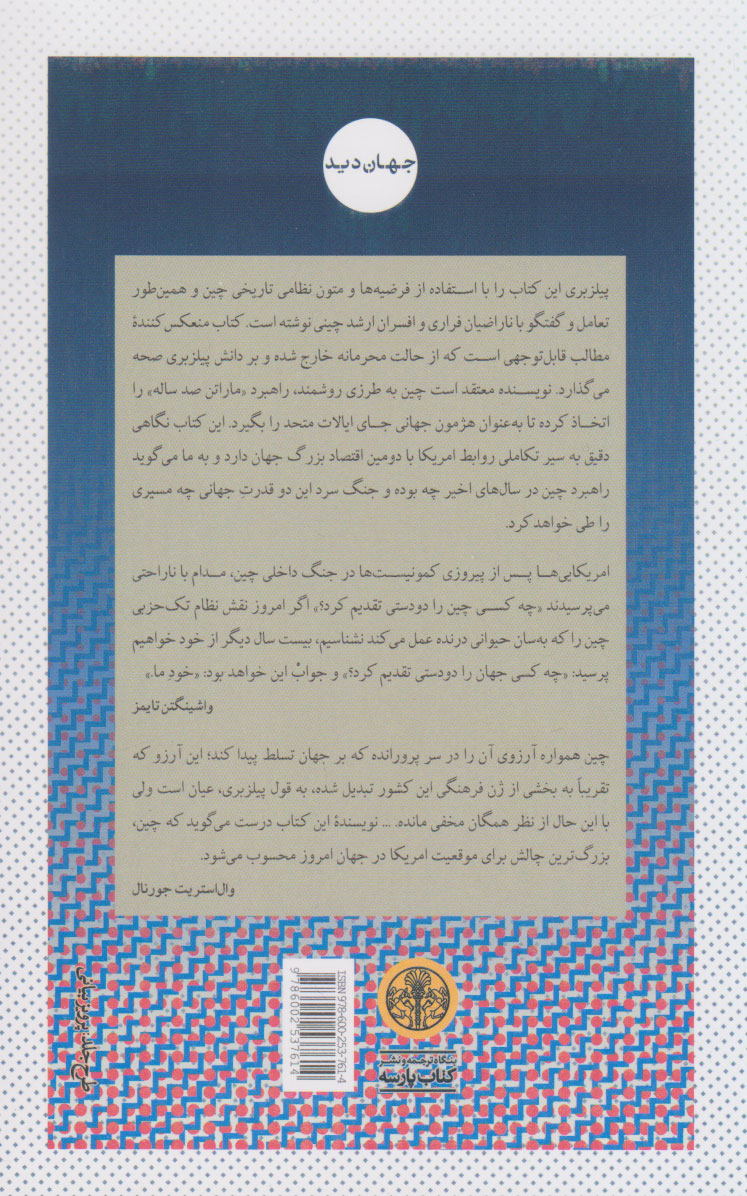 جهان‌دید
پیلزبری این کتاب را با استفاده از فرضیه‌ها و متون نظامی تاریخی چین و همین‌طور
تعامل و گفتگو با ناراضیان فراری و افسران ارشد چینی نوشته است. کتاب منعکس‌کنندهٔ
مطالب قابل‌توجهی است که از حالت محرمانه خارج شده و بر دانش پیلزبری صحه
می‌گذارد. نویسنده معتقد است چین به طرزی روشمند، راهبرد «ماراتن صد ساله» را
اتخاذ کرده تا به‌عنوان هژمون جهانی جای ایالات متحد را بگیرد. این کتاب نگاهی
دقیق به سیر تکاملی روابط امریکا با دومین اقتصاد بزرگ جهان دارد و به ما می‌گوید
راهبرد چین در سال‌های اخیر چه بوده و جنگ سرد این دو قدرتِ جهانی چه مسیری
را طی خواهد کرد.
امریکایی‌ها پس از پیروزی کمونیست‌ها در جنگ داخلی چین، مدام با ناراحتی
می‌پرسیدند «چه کسی چین را دودستی تقدیم کرد؟» اگر امروز نقش نظام تک‌حزبی
چین را که به‌سان حیوانی درنده عمل می‌کند نشناسیم، بیست سال دیگر از خود خواهیم
پرسید: «چه کسی جهان را دودستی تقدیم کرد؟» و جوابْ این خواهد بود: «خودِ ما.»
واشینگتن تایمز
چین همواره آرزوی آن را در سر پرورانده که بر جهان تسلط پیدا کند؛ این آرزو که
تقریباً به بخشی از ژن فرهنگی این کشور تبدیل شده، به قول پیلزبری، عیان است ولی
با این حال از نظر همگان مخفی مانده. ... نویسندهٔ این کتاب درست می‌گوید که چین،
بزرگ‌ترین چالش برای موقعیت امریکا در جهان امروز محسوب می‌شود.
وال‌استریت جورنال
بنگاه ترجمه و نشر
کتاب پارسه
ISBN 978-600-253-761-4
9 786002 537614
طرح جلد: پرویز بیانی